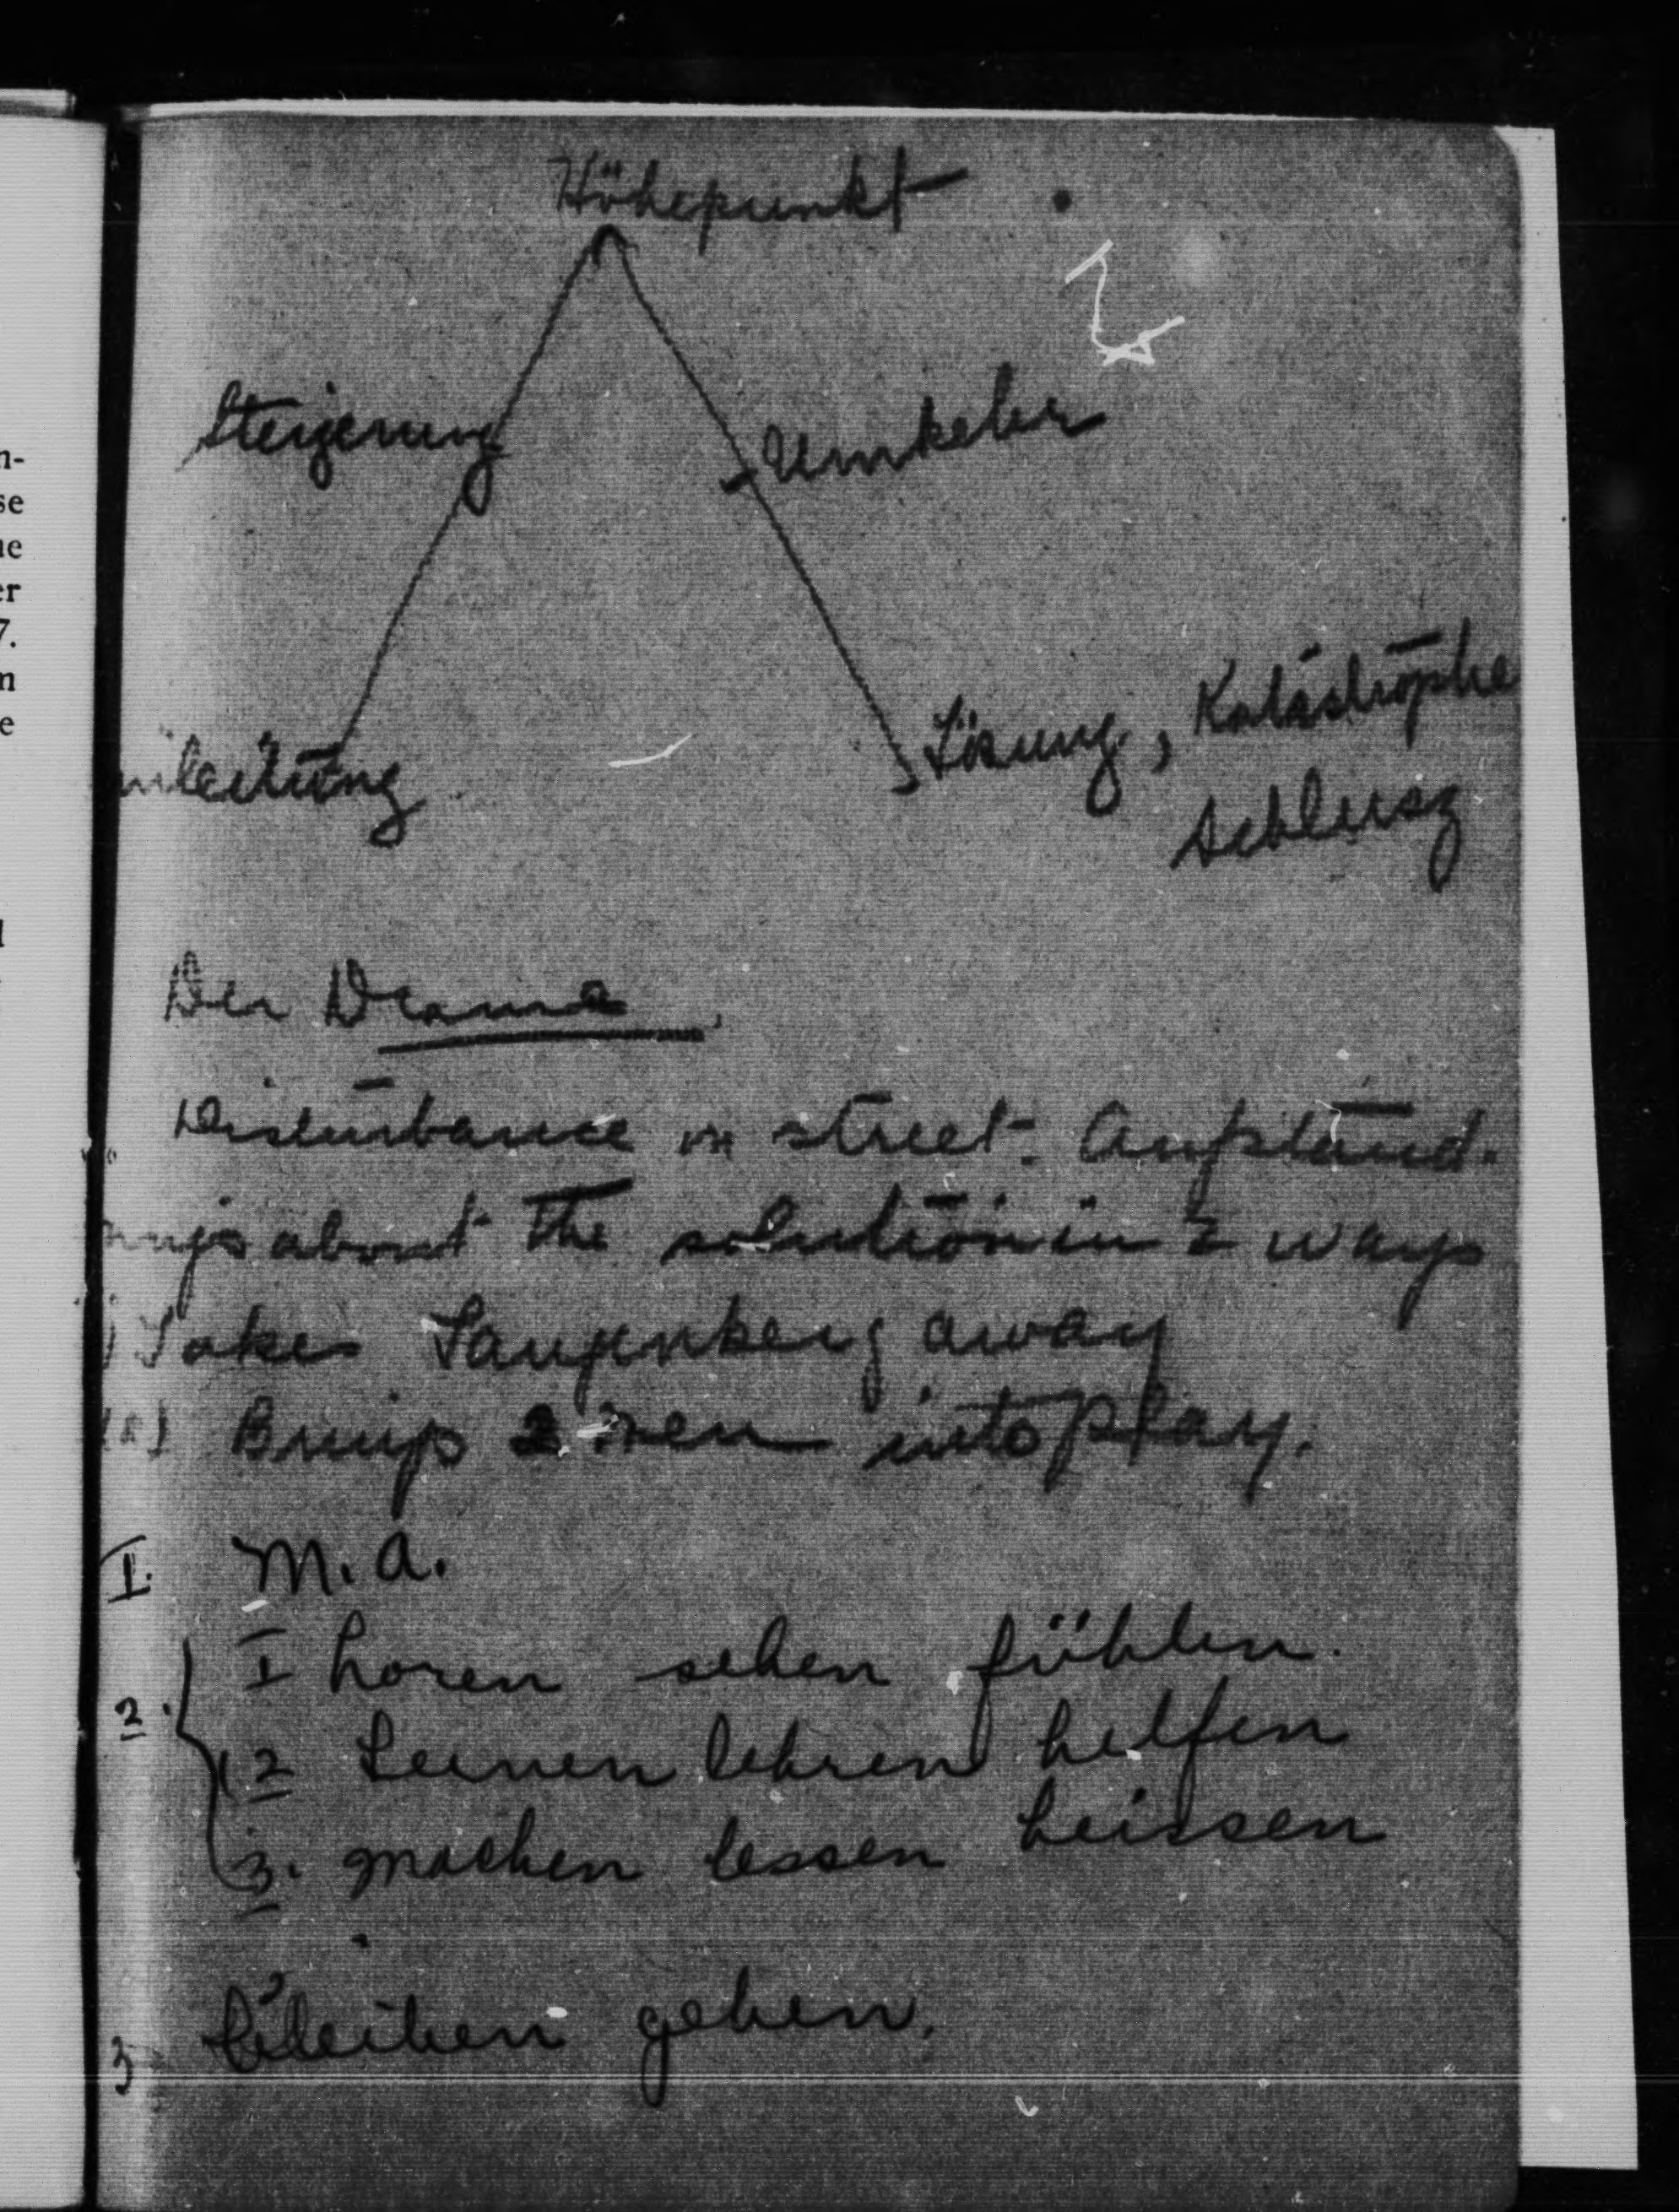 n-
se
ue
er
7.
m
e
d
Höhepunkt
Steigerung
Umkehr
inleitung
Lösung, Katastrophe
schlusz
Der Drama
Disturbance in street. Aufstand.
rings about the solution in 2 ways
) Takes Langenberg away
Brings 2 men into play.
I. M.A.
2. I horen sehen fühlen.
(2 Lernen lehren helfen
3. machen lessen heissen
3 bleiben gehen.